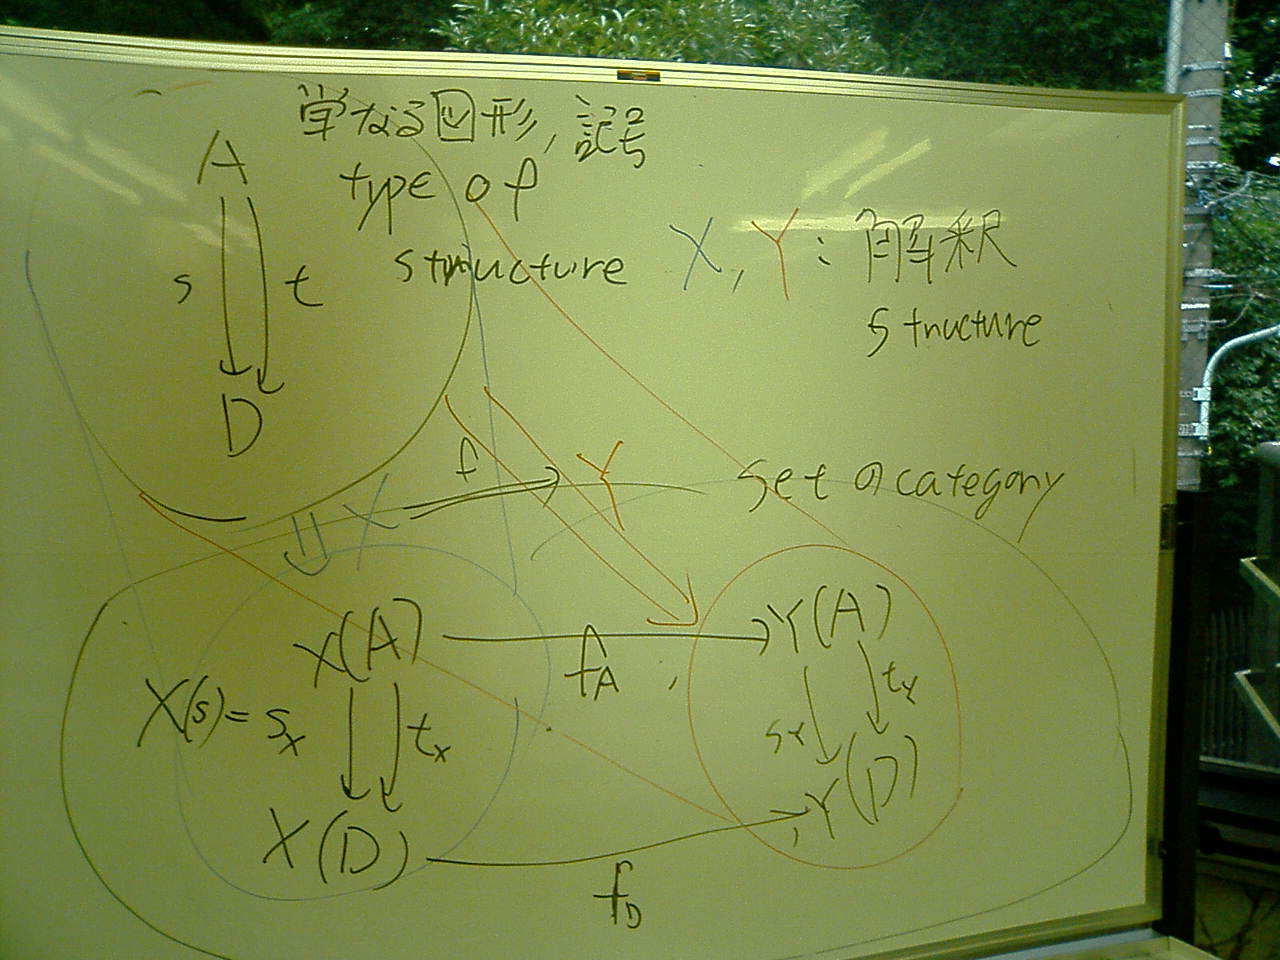 単なる図形,記号
type of
structure
A
s t
D
X, Y : 解釈
structure
f
X
Y
Set の category
X(A)
f_A
Y(A)
X(s) = s_X
t_X
s_Y
t_Y
X(D)
f_D
Y(D)